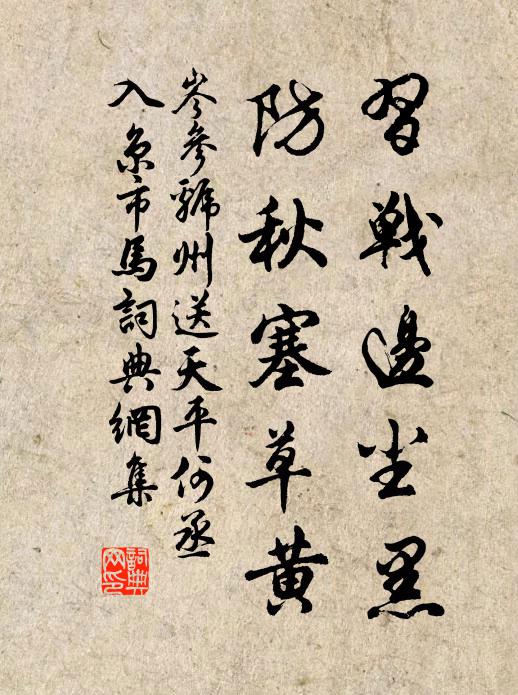 習戰邊塵黑
防秋塞草黄
岑參虢州送天平何丞
入京市馬詞典網集
詞典网印